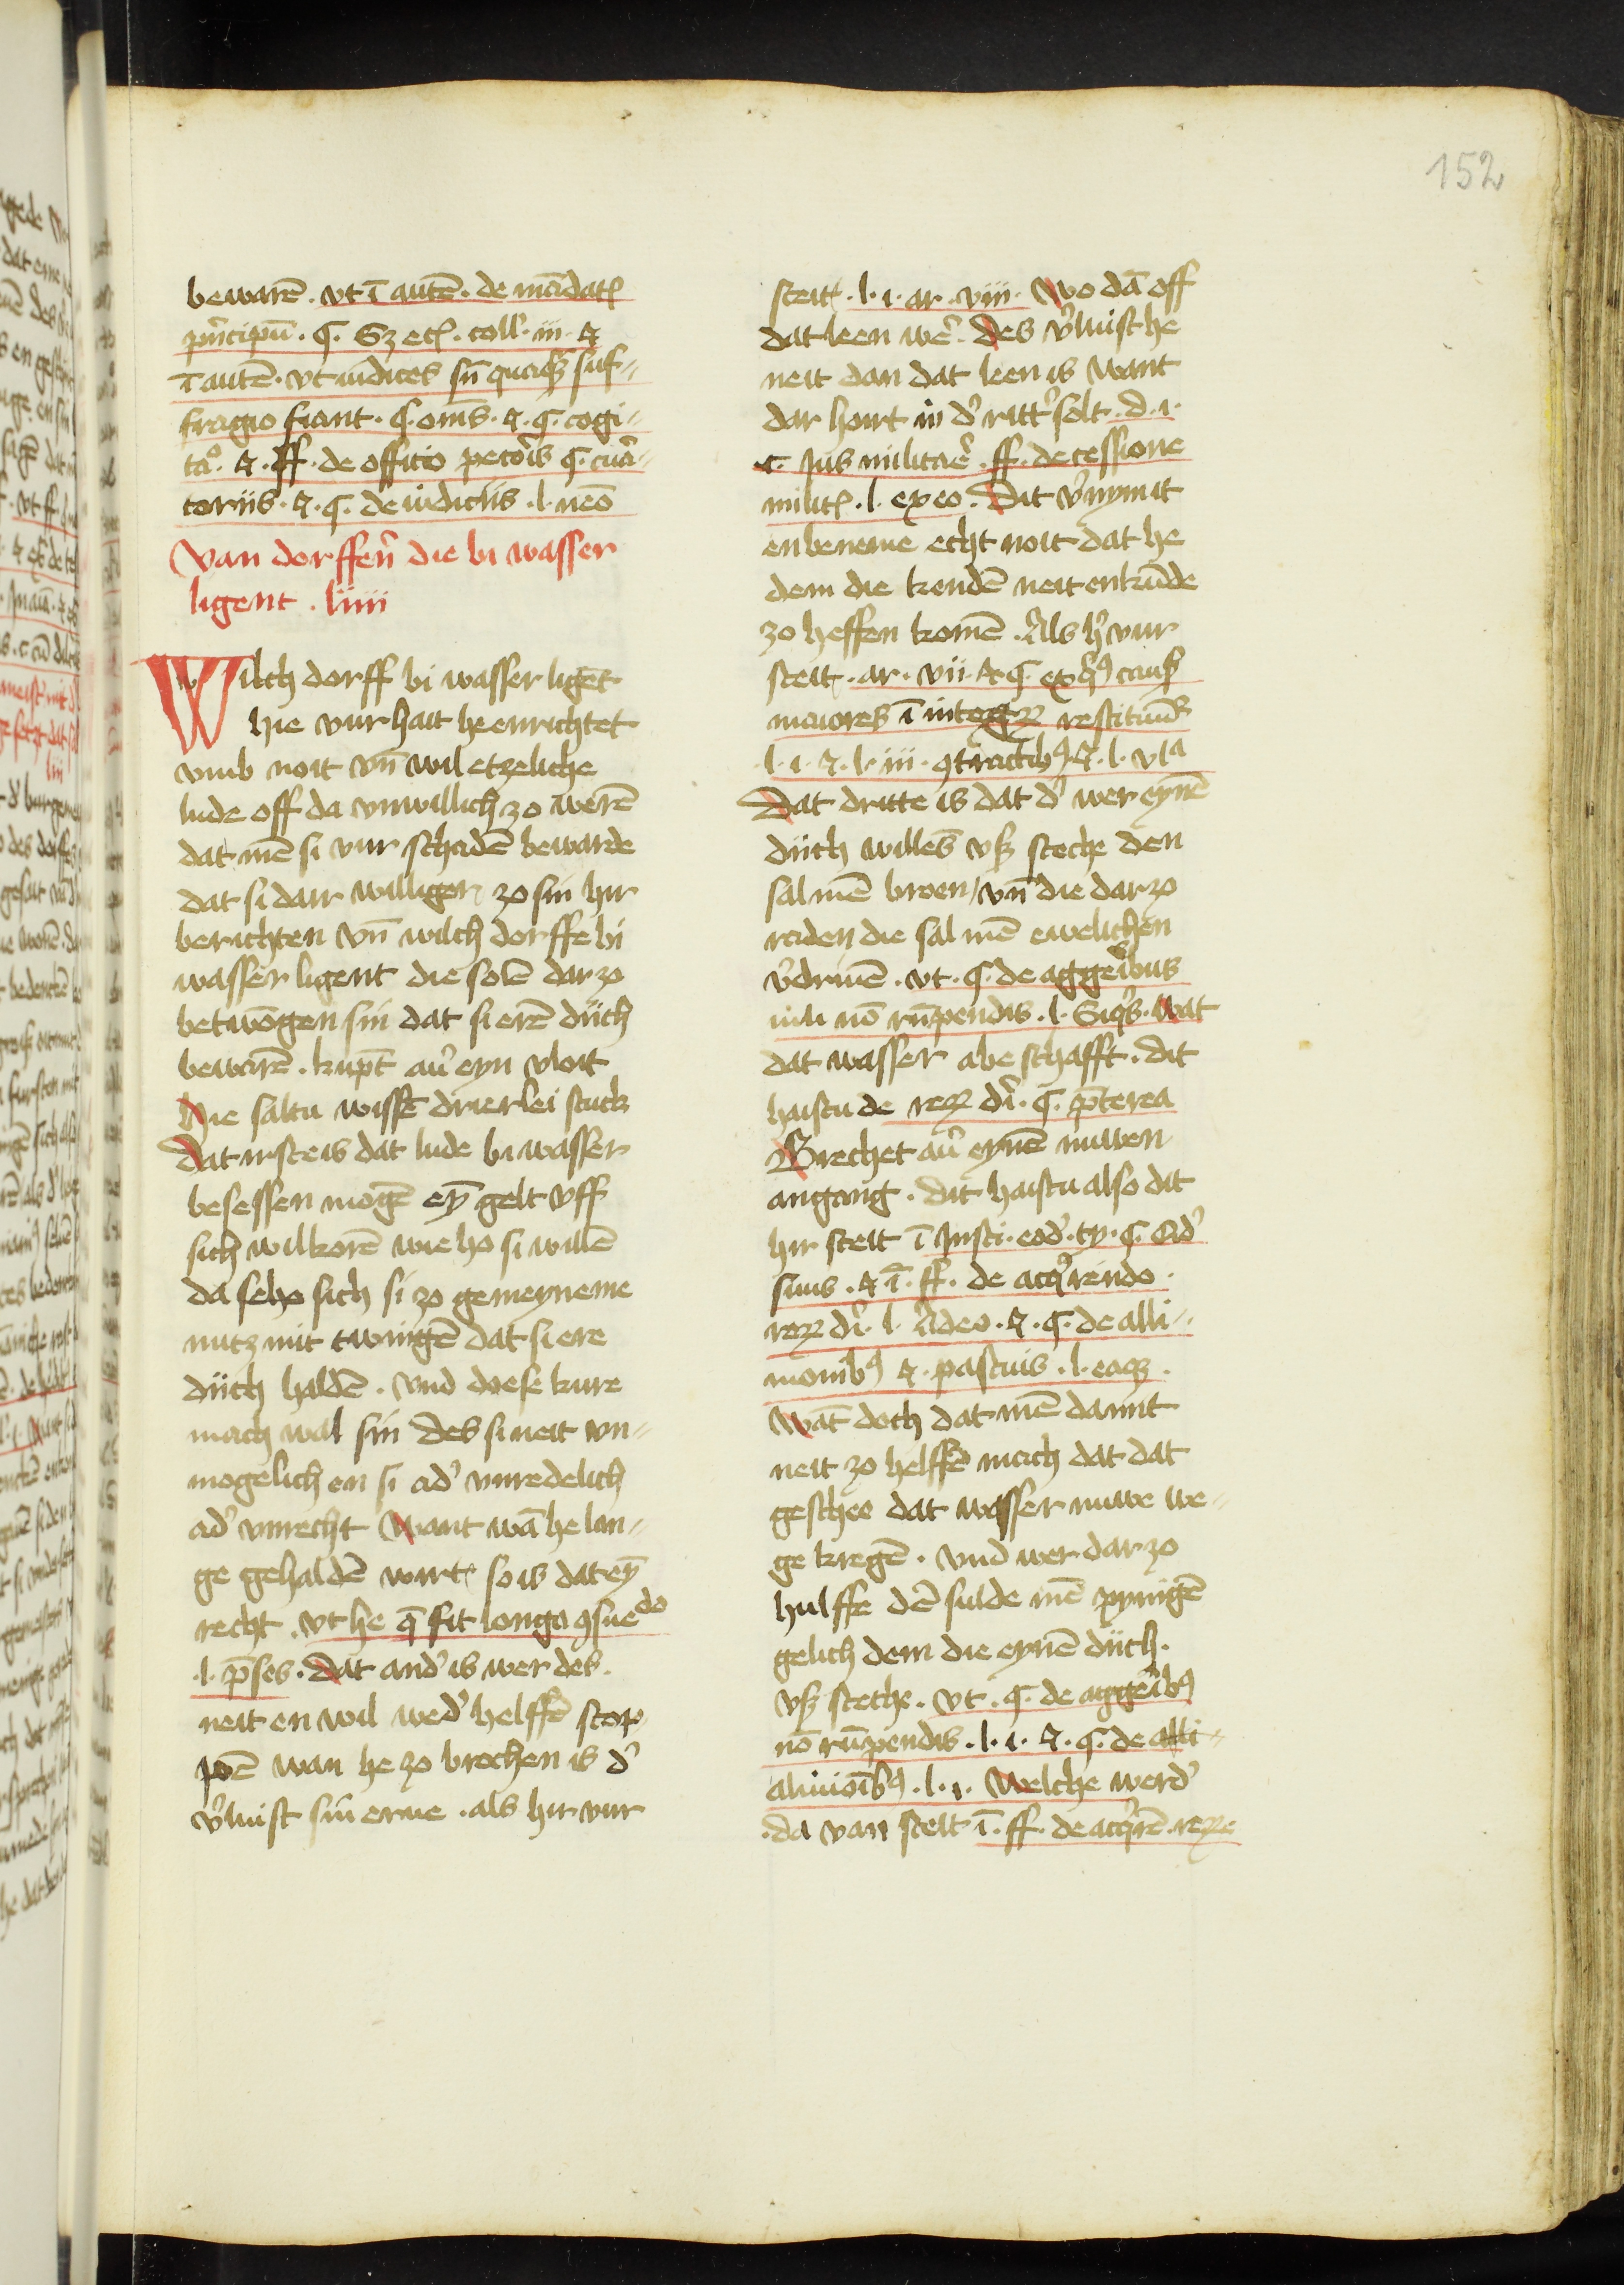 152
bewarē . vt ī autē . de mādatꝭ
pͥncipū . ꝯ. Sꝫ ecꝭ . coll . iii . ⁊
ī autē . vt iudices sn̄ quoqꝫ suf-
fragio fiant . ꝯ. oms̄ . ⁊ . ꝯ. cogi-
tͦa . ⁊ . ff . de officio
toriis . ⁊ . ꝯ. de iudiciis . l . neō
Van dorffen̄ die bi wasser
ligent . liiii
Wilch dorff bi wasser ligēt
hie vur hait he enrichtet
vmb noit vn̄ wil etzeliche
lude off da vnwillich zo werē
dat mē si vur schadē bewarde
dat si dair williger zo sin hir
berichten vn̄ wilch dorffe bi
wasser ligent die solē dar zo
betwōgen sin dat si erē dijch
bewarē . kūpt au̾ eyn vloit
Die saltu wissē drierlei stuck
Dat irste is dat lude bi wasser
besessen mogē eȳ gelt vff
sich wilkorē wie ho si willē
da selbo sich si zo gemeyneme
nutz mit twingē dat si ere
dijch haldē . vnd doese kure
mach wal sin des si neit vn-
mogelich en si ad̾ vnredelich
ad̾ vnrecht Want wā he lan-
ge gehaldē wirt so is dat eȳ
recht . vt he q̄ sit longa ꝯsuedo
. l . p̄ses . Dat and̾ is wer des
neit en wil wed̾ helffē stop
pē wan he zo brochen is d̾
v̾luist sin erue . als hir vur
steit . l . i . ar . viii . Wo dā off
dat leen wē̾ . des v̾luist he
neit dan dat leen is want
dar hoirt in d̾ ritt̾ solt . d . i .
c . Jus militaē̾ . ff . de cessione
militꝭ . l . ex eo . Dit v̾nymt
en beneme echt noit dat he
dem die kondē neit enkūde
zo heffen komē . Als h̾ vur
steit . ar . vii . ⁊ ꝯ. ex qͥbꝰ causꝭ
maiores ī integrꝝ restituūd̾
. l . i . ⁊ . l . iii . ꝯtractibꝰ ⁊ . l . vlᵃ
Dat dritte is dat d̾ wer eynē
dijch willēs vß steche den
sal mē broen / vn̄ die dar zo
raden die sal mē ewelichen
v̾driuē . vt . ꝯ. de aggeribus
nili nō rūpendis . l . Siqͥs . Wat
dat wasser abe schafft . dit
haistu de reꝝ di̾ . ꝯ. p̄terea
Brechet au̾ eynē nuwen
angang . dit haistu also dit
hir steit ī Insti . eod̾ . ty . ꝯ. Qd̾
siuus . ⁊ ī . ff . de acqͥrendo .
reꝝ di̾ . l . Adeo . ⁊ . ꝯ. de alli-
monibꝰ ⁊ . pascuis . l . eaqꝫ .
Wāt doch dat mē damit
neit zo helffē mach dat dat
geschee dat wasser nuwe we-
ge kregē . vnd wer dar zo
hulffe dē sulde mē pynigē
gelich dem die eynē dijch .
vß steche . vt . ꝯ. de aggeribꝰ
nō rūpendis . l . i . ⁊ . ꝯ. de alli-
aluuioībꝰ . l . i . Welche werd̾
. da van steit ī . ff . de acqͥrē . reꝝ